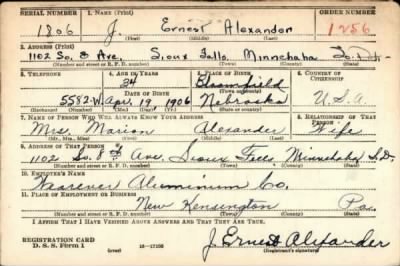 SERIAL NUMBER 1. NAME (Print) ORDER NUMBER
1806 J. Ernest Alexander 1256
(First) (Middle) (Last)
2. ADDRESS (Print)
1102 So. 8 Ave. Sioux Falls Minnehaha So. D.
(Number and street or R. F. D. number) (Town) (County) (State)
3. TELEPHONE 4. AGE IN YEARS 5. PLACE OF BIRTH 6. COUNTRY OF CITIZENSHIP
34 Bloomfield
(Town or county)
5582-W Apr. 19 1906 Nebraska U.S.A.
(Exchange) (Number) (Mo.) (Day) (Yr.) (State or country)
7. NAME OF PERSON WHO WILL ALWAYS KNOW YOUR ADDRESS 8. RELATIONSHIP OF THAT PERSON
Mrs. Marion Alexander Wife
(Mr., Mrs., Miss) (First) (Middle) (Last)
9. ADDRESS OF THAT PERSON
1102 So. 8 Ave. Sioux Falls Minnehaha S.D.
(Number and street or R. F. D. number) (Town) (County) (State)
10. EMPLOYER'S NAME
Wearever Aluminum Co.
11. PLACE OF EMPLOYMENT OR BUSINESS
New Kensington Pa.
(Number and street or R. F. D. number) (Town) (County) (State)
I AFFIRM THAT I HAVE VERIFIED ABOVE ANSWERS AND THAT THEY ARE TRUE.
REGISTRATION CARD
D. S. S. Form 1 (over) 16—17105
J. Ernest Alexander
(Registrant's signature)